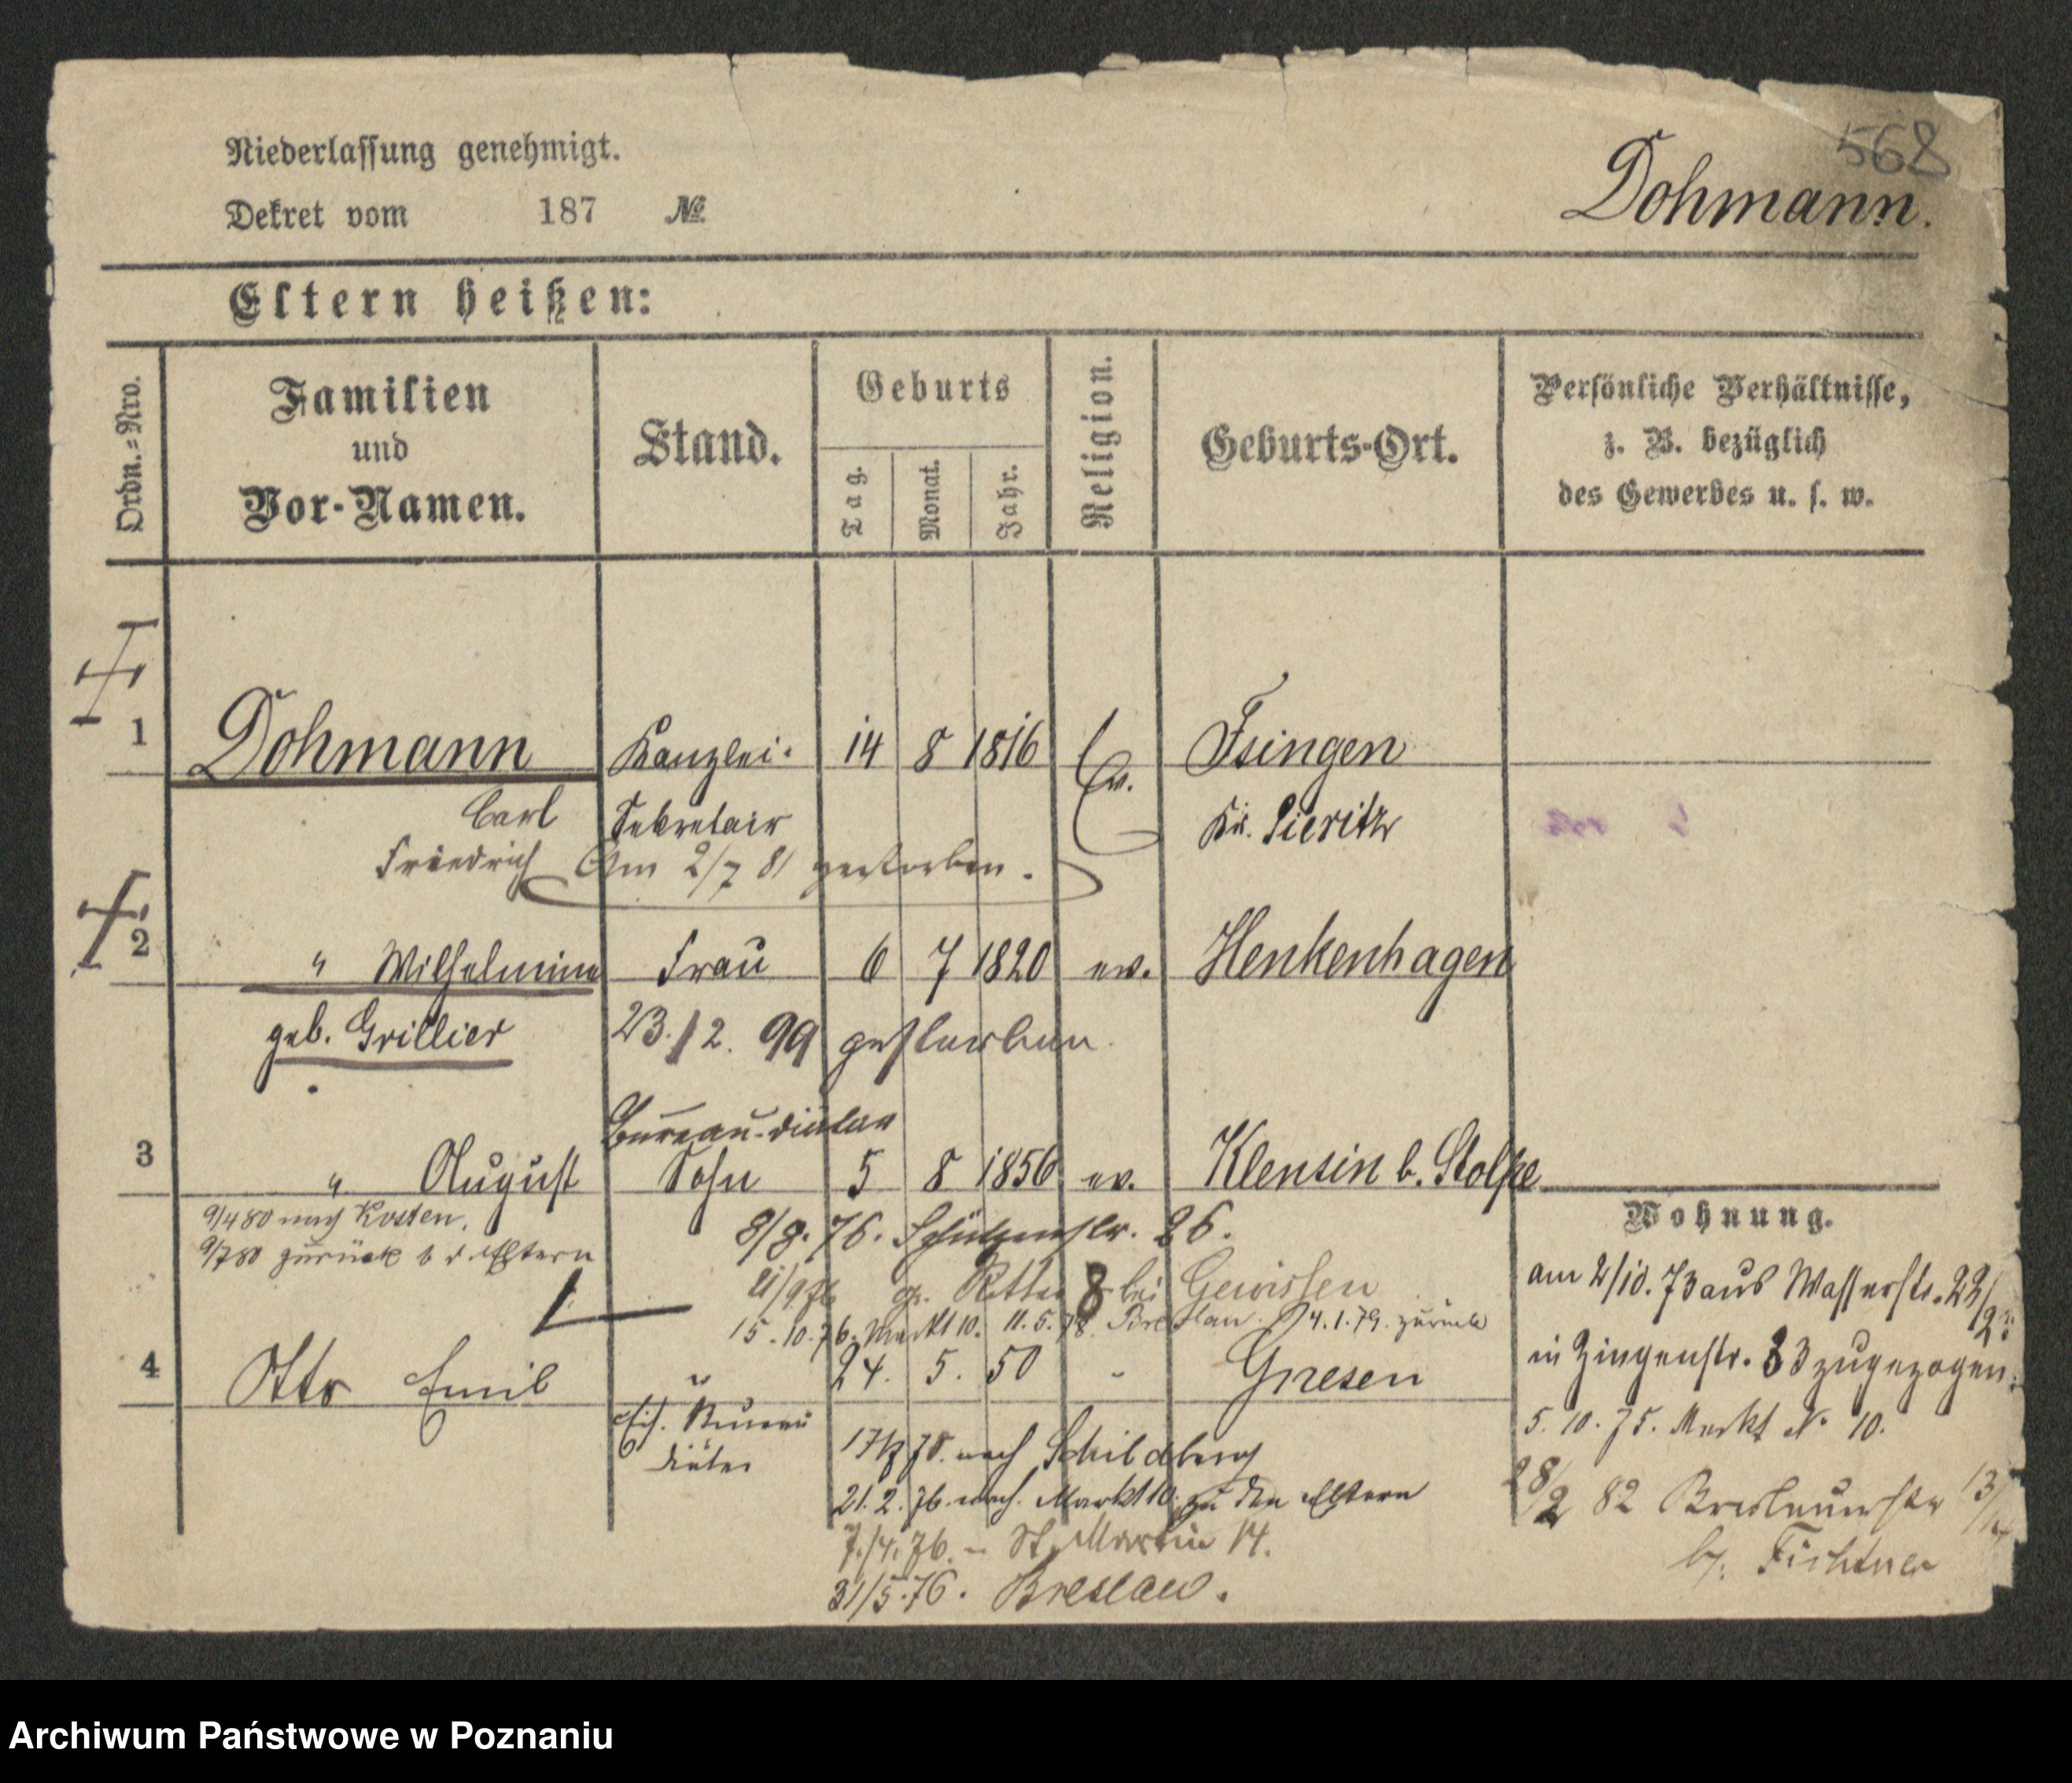 568
Niederlassung genehmigt.
Dekret vom 187 №
Dohmann.
Eltern heißen:
Ordn.=Nro.
Familien
und
Vor-Namen.
Stand.
Geburts
Tag.
Monat.
Jahr.
Religion.
Geburts-Ort.
Persönliche Verhältnisse,
z. B. bezüglich
des Gewerbes u. s. w.
1 Dohmann Kanzlei- 14 8 1816 Ev. Tsingen
Carl Sekretair Kr. Pieritz
Friedrich Am 2/7 81 gestorben.
2 " Wilhelmine Frau 6 7 1820 ev. Henkenhagen
geb. Grillier 23./2. 99 gestorben.
Bureau-Diätar
3 " August Sohn 5 8 1856 ev. Klensin b. Stolpe
9/4 80 nach Kosten.
9/7 80 zurück b d. Eltern
8/8. 76. Schützenstr. 26.
gr. Ritter 8 bei Gewissen
15.10.76. Markt 10. 11.5.78. Breslau. 4.1.79. zurück
4 Otto Emil " 24. 5. 50 - Gnesen
Diätar
nach Schildberg
21.2.76. nach Markt 10. zu den Eltern
7./4. 76. - St. Martin 14.
31/5.76. Breslau.
Wohnung.
am 2/10. 73 aus Wasserstr. 22/23
in Ziegenstr. 83 zugezogen.
5. 10. 75. Markt N. 10.
28/2 82 Breslauerstr 13/14
b. Fichtner
Archiwum Państwowe w Poznaniu